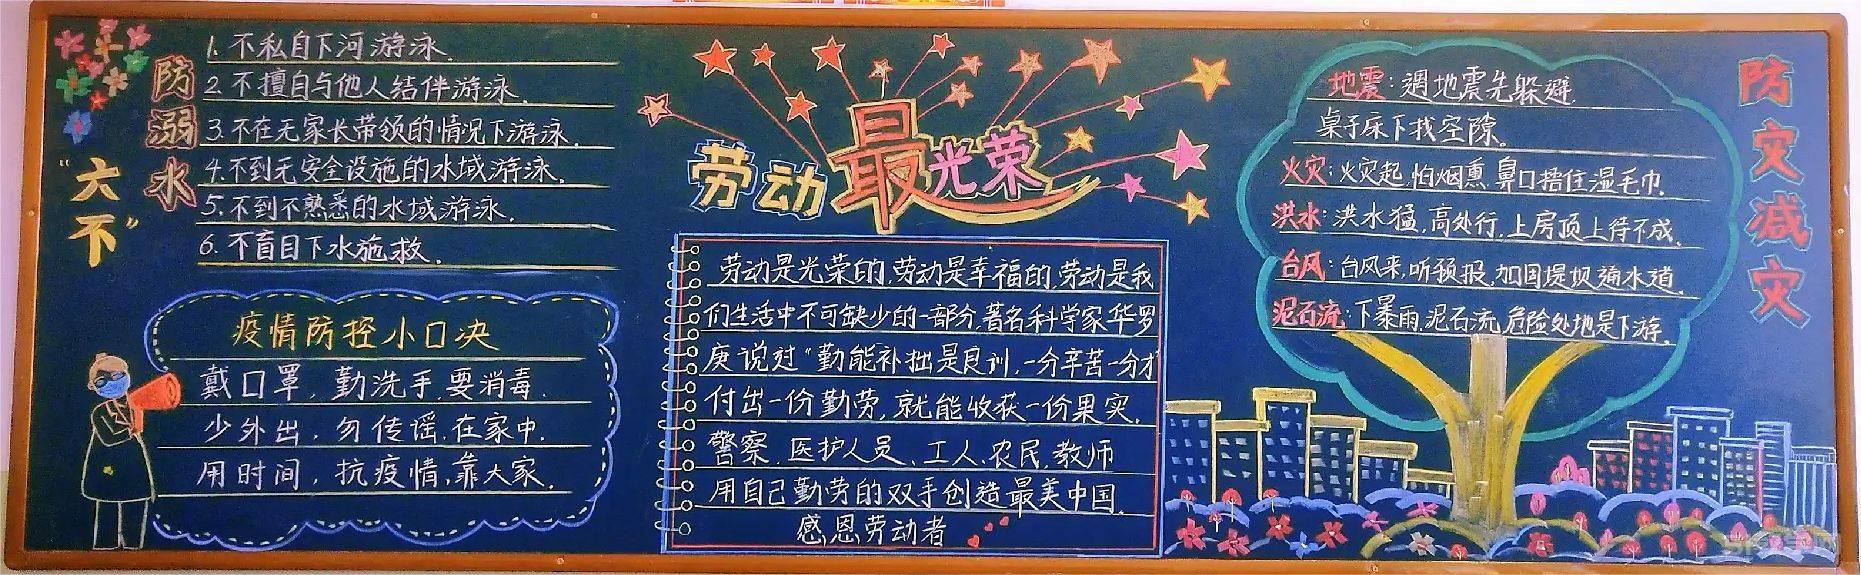 防溺水
"六不"
1.不私自下河游泳.
2.不擅自与他人结伴游泳.
3.不在无家长带领的情况下游泳.
4.不到无安全设施的水域游泳.
5.不到不熟悉的水域游泳.
6.不盲目下水施救.
疫情防控小口决
戴口罩,勤洗手,要消毒.
少外出,勿传谣,在家中.
用时间,抗疫情,靠大家.
劳动最光荣
劳动是光荣的,劳动是幸福的,劳动是我
们生活中不可缺少的一部分,著名科学家华罗
庚说过"勤能补拙是良训,一分辛苦一分才
付出一份勤劳,就能收获一份果实.
警察、医护人员、工人、农民、教师
用自己勤劳的双手创造最美中国.
感恩劳动者
防灾减灾
地震:遇地震先躲避.
桌子床下找空隙。
火灾:火灾起,怕烟熏,鼻口捂住湿毛巾.
洪水:洪水猛,高处行,上房顶上待不成.
台风:台风来,听预报,加固堤坝通水道.
泥石流:下暴雨,泥石流,危险处地是下游.